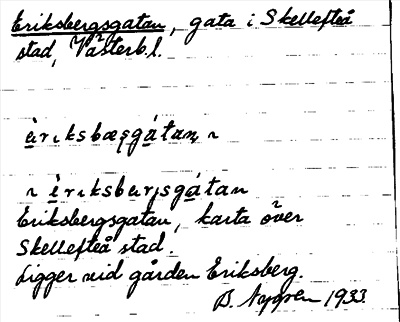 Eriksbergsgatan, gata i Skellefteå
stad, Västerb.l.
èrıksbæşgátaṇ ~
~ èrıksbærjsgátan
Eriksbergsgatan, karta över
Skellefteå stad.
Ligger vid gården Eriksberg.
B. Nygren 1933